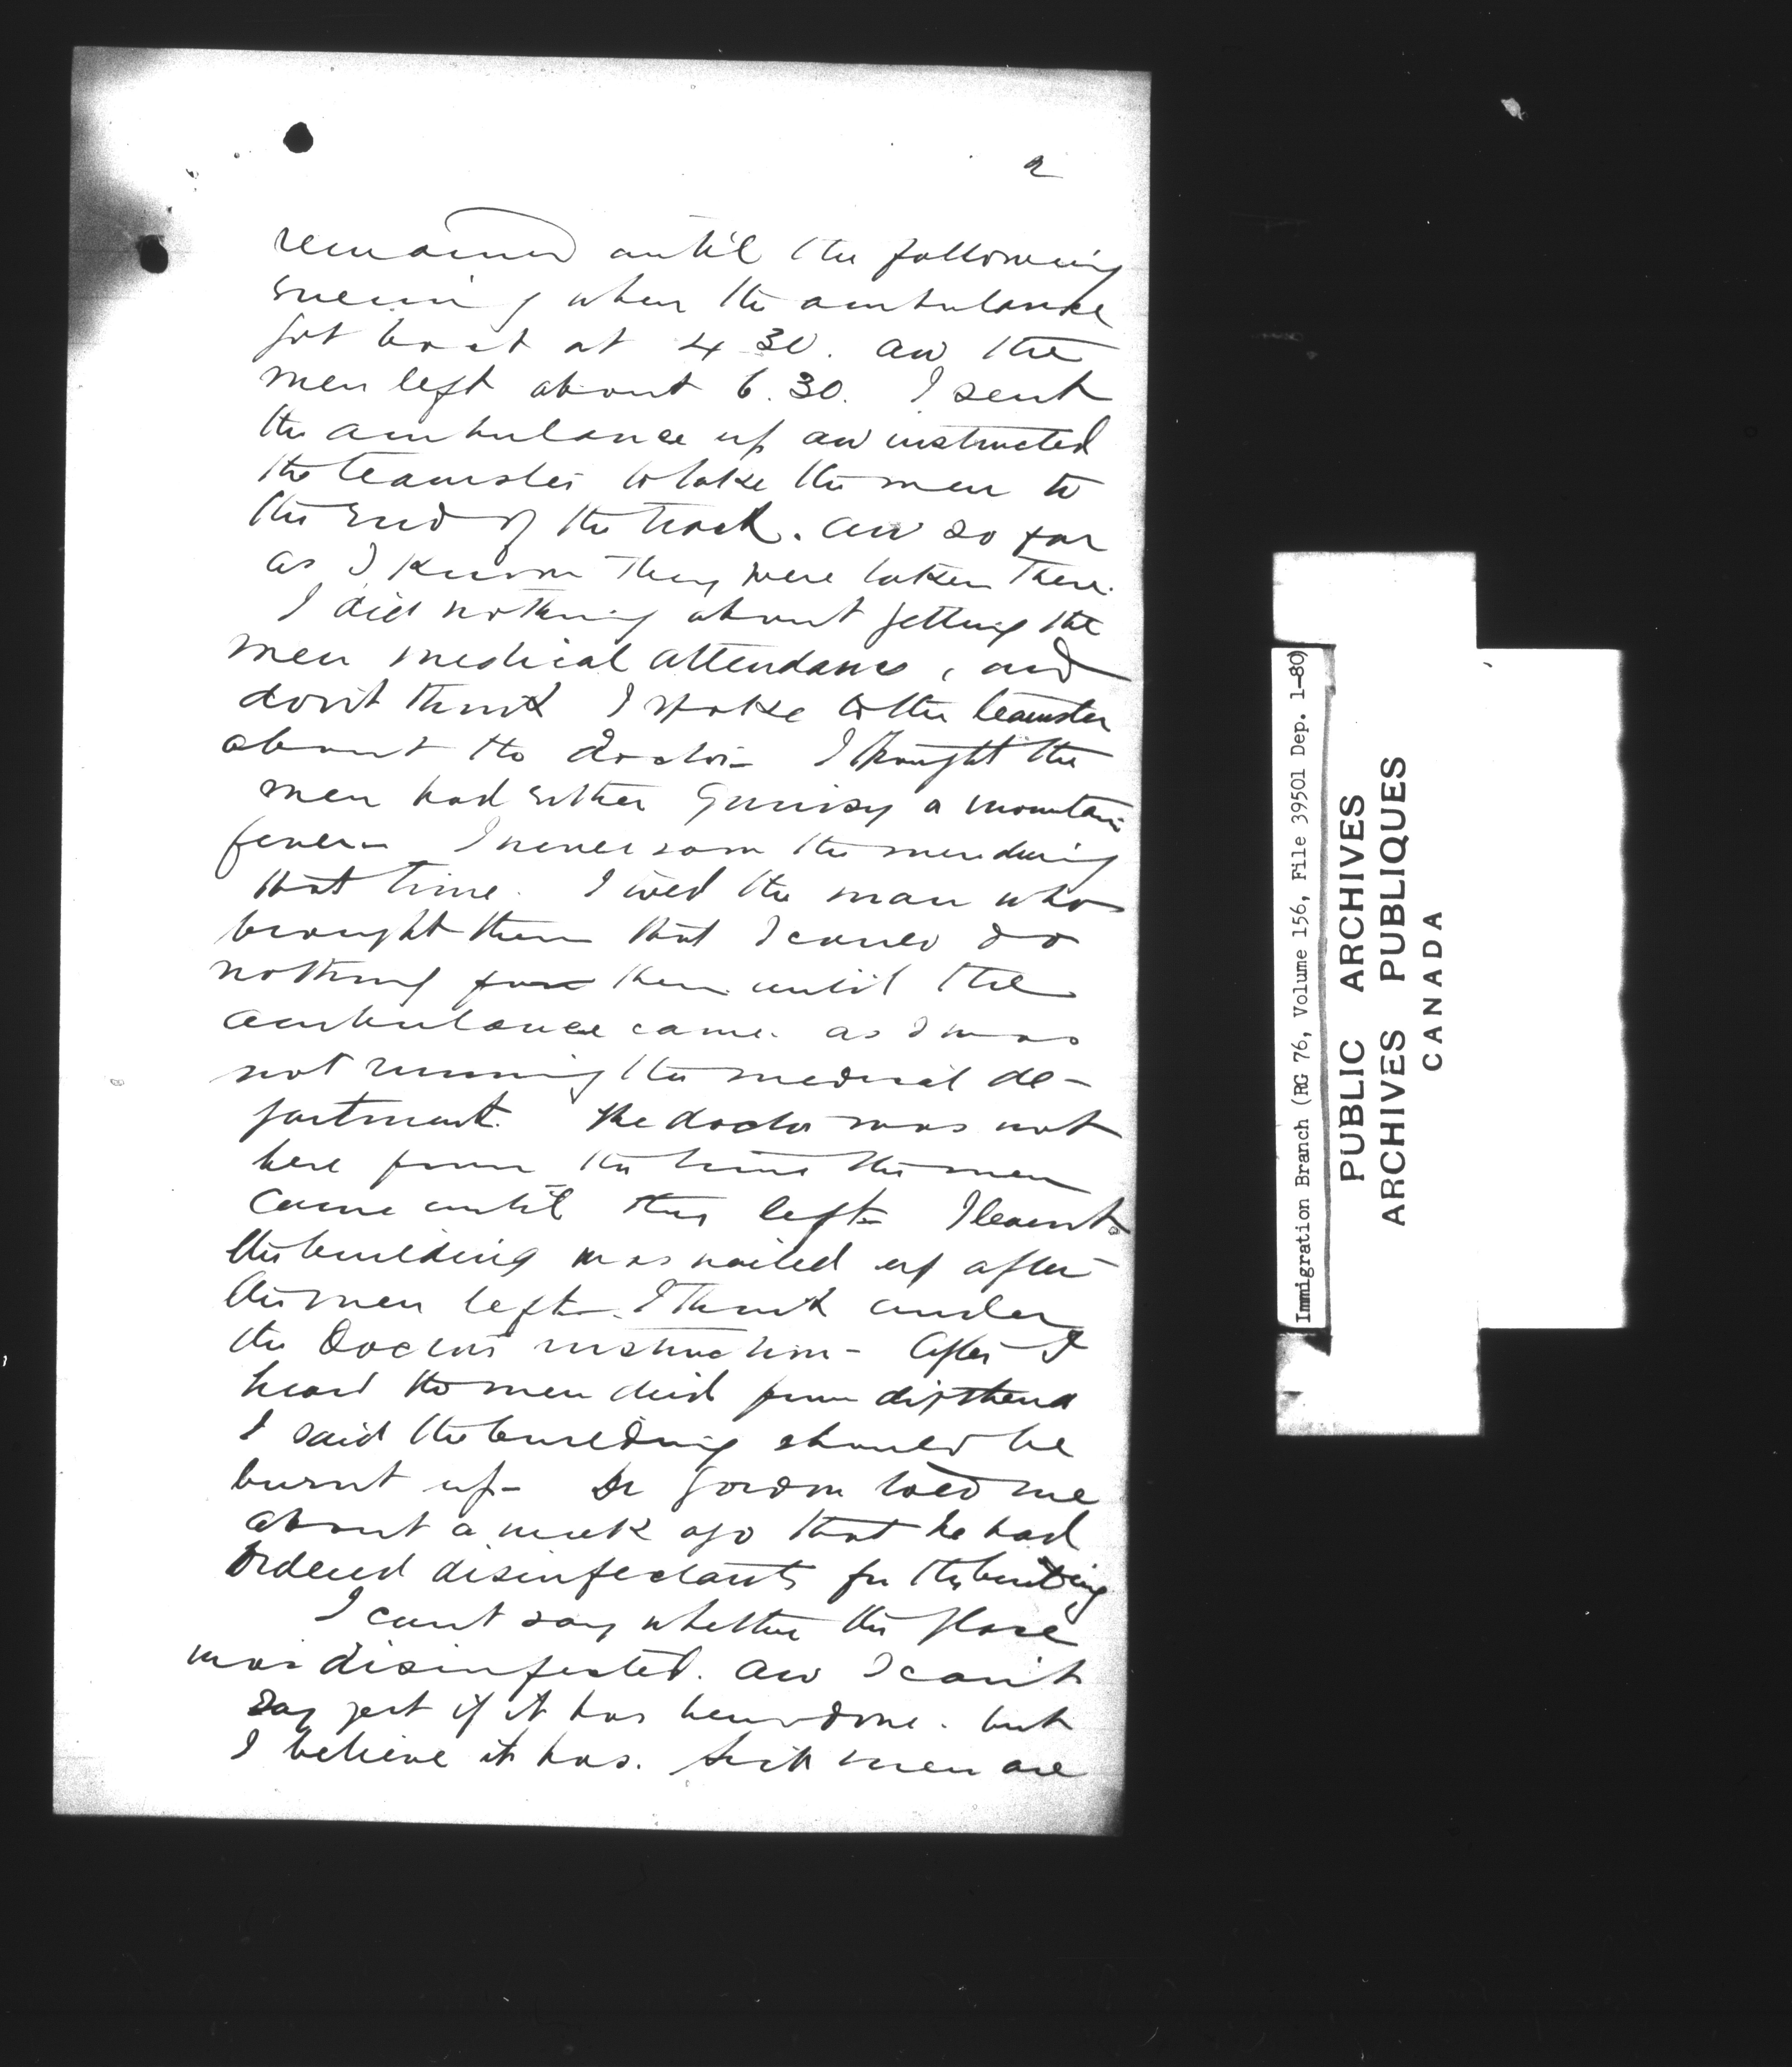 2
remained until the following
evening when the ambulance
got back at 4 30. and the
men left about 6.30. I sent
the ambulance up and instructed
the teamster to take the men to
the end of the track. and so far
as I know they were taken there.
I did nothing about getting the
men medical attendance, and
don't think I spoke to the teamster
about the doctor I thought the
men had either Quinsy or mountain
fever. I never saw the men during
that time. I told the man who
brought them that I could do
nothing for them until the
ambulance came. as I was
not running the medical de-
partment. The doctor was not
here from the time the men
came until they left. I learnt
the building was nailed up after
the men left. I think under
the Doctors instruction- After I
heard the men died from diptheria
I said the building should be
burnt up- Dr Gordon told me
about a week ago that he had
ordered disinfectants for the building
I cant say whether the place
was disinfected. and I can't
say yet if it has been done. but
I believe it has. Sick men are
Immigration Branch (RG 76, Volume 156, File 39501 Dep. 1-80)
PUBLIC ARCHIVES
ARCHIVES PUBLIQUES
CANADA